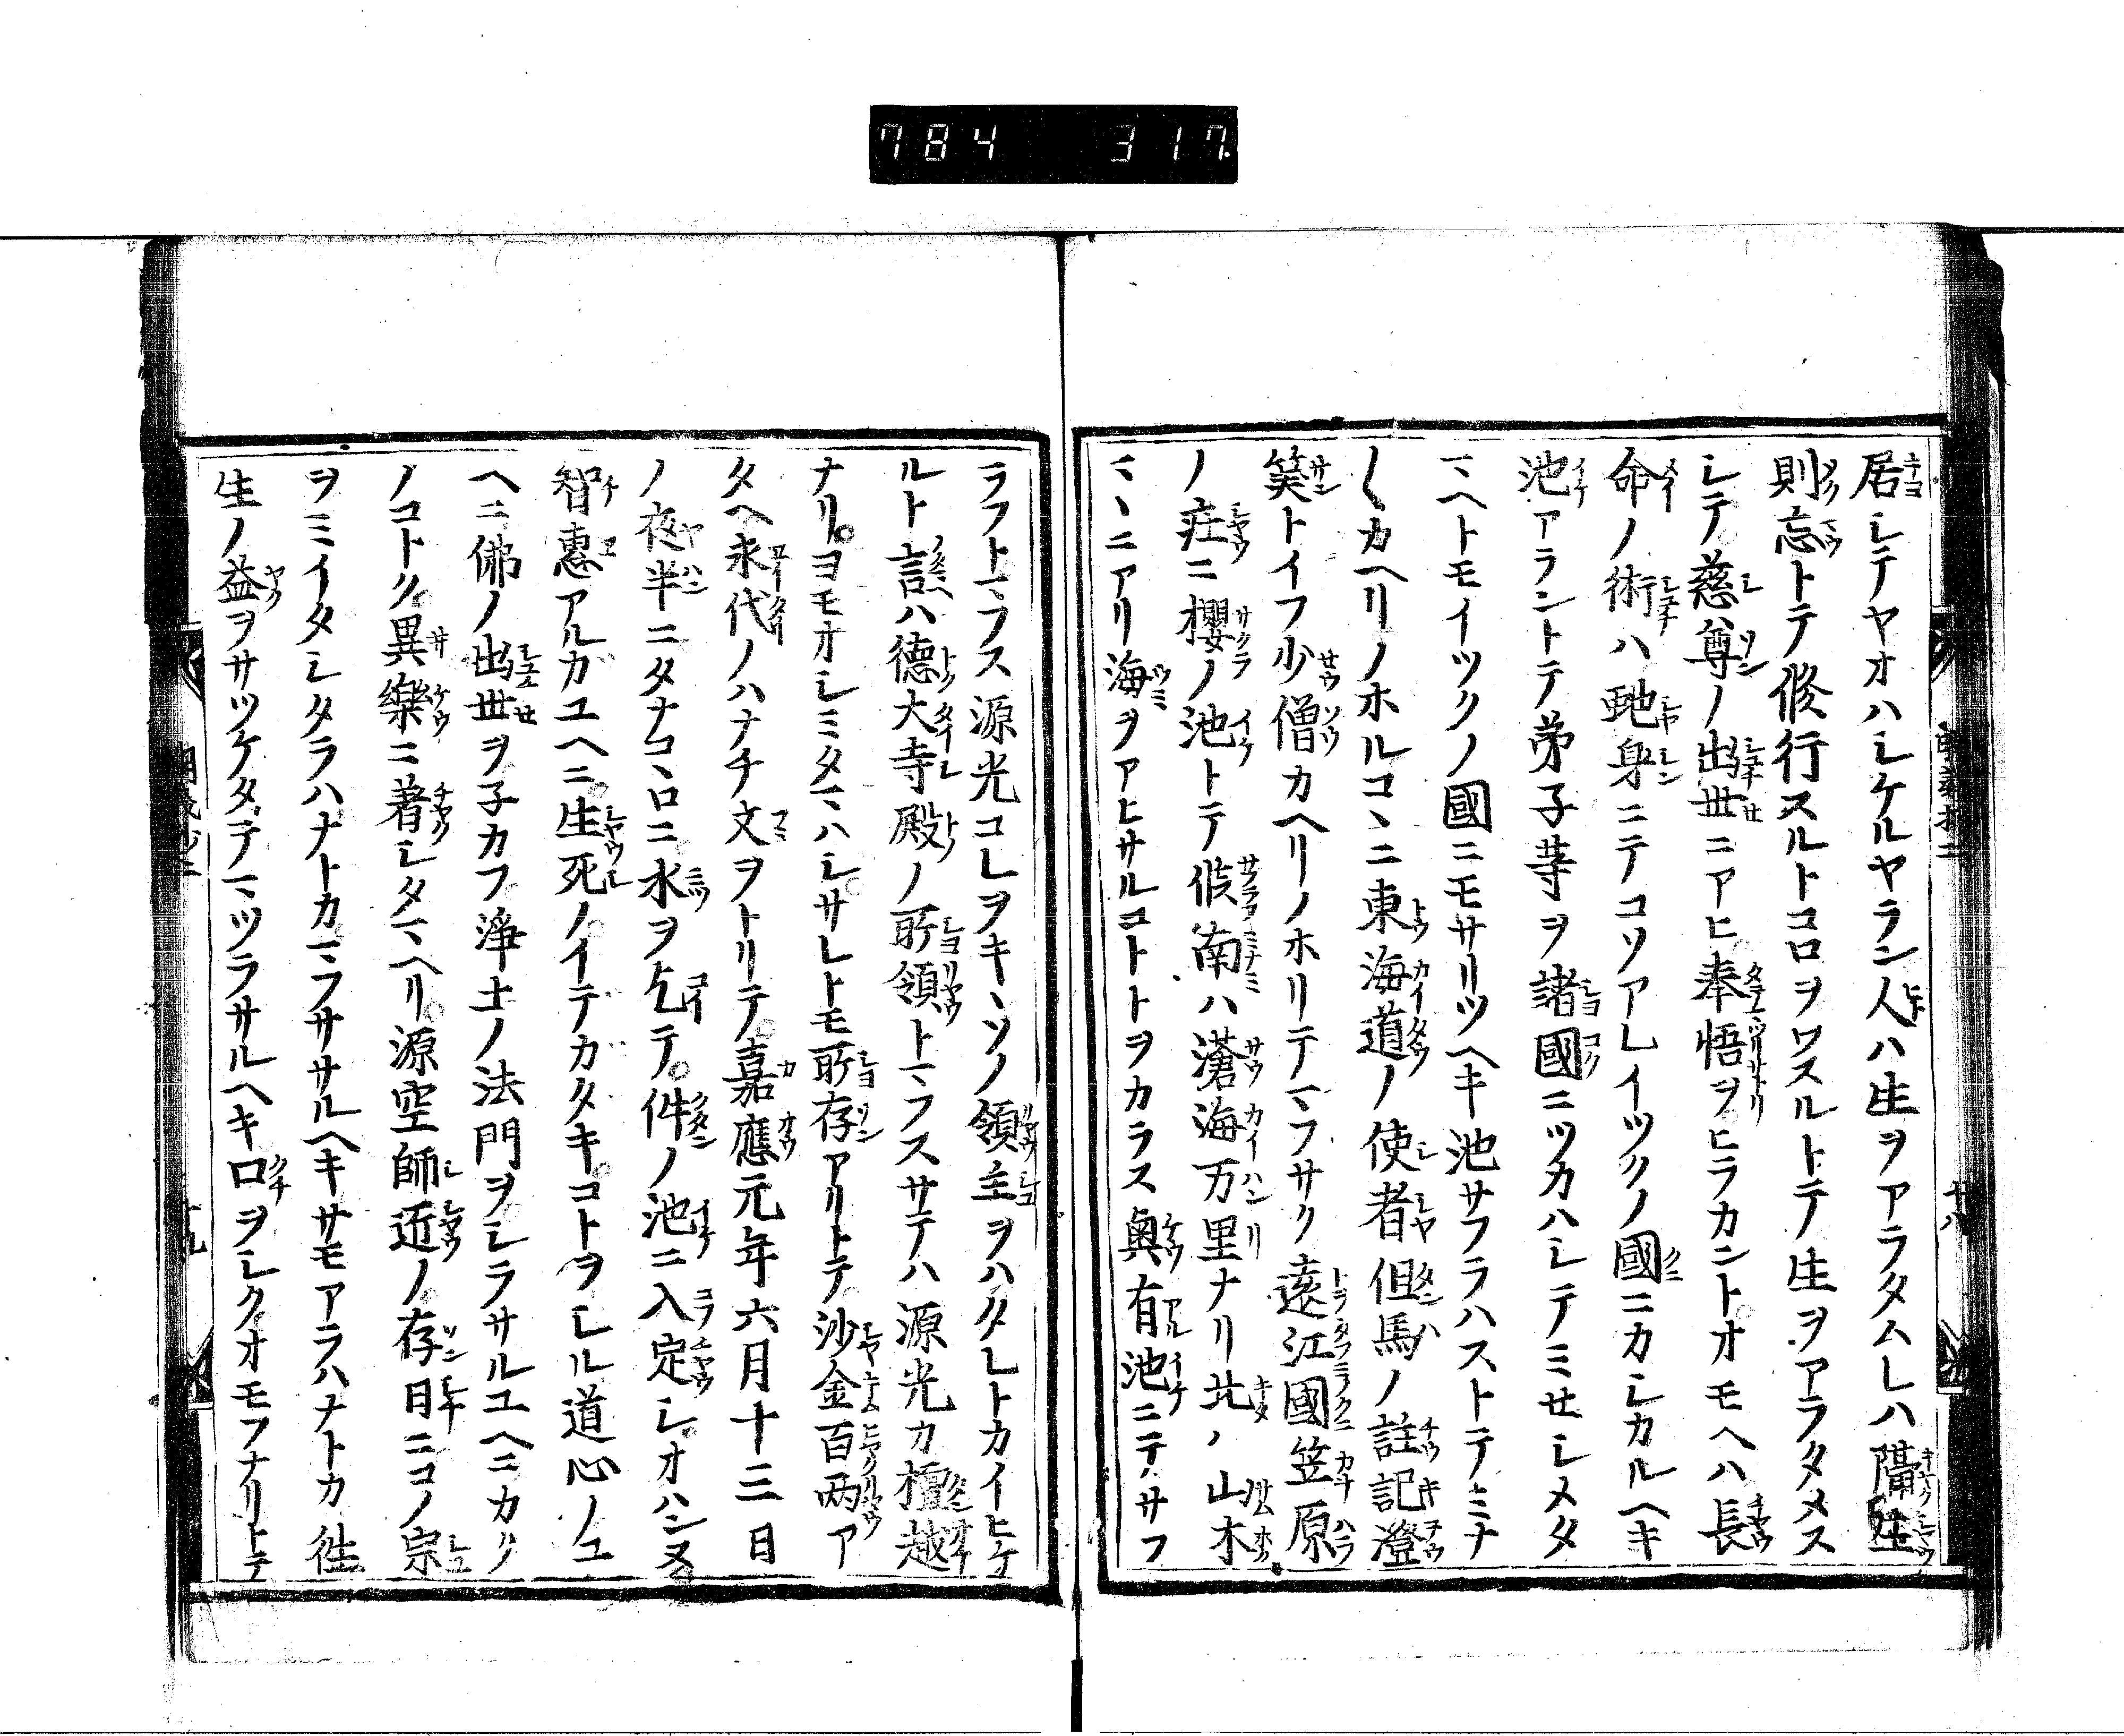 784 317
居シテヤオハシケルヤラン人ハ生ヲアラタムレハ隔生
則忘トテ修行スルトコロヲワスルトテ生ヲアラタメス
シテ慈尊ノ出世ニアヒ奉悟ヲヒラカントオモヘハ長
命ノ術ハ虵身ニテコソアレイツクノ國ニカシカルヘキ
池アラントテ弟子等ヲ諸國ニツカハシテミセシメタ
マヘトモイツクノ國ニモサリツヘキ池サフラハストテミナ
〱カヘリノホルコヽニ東海道ノ使者但馬ノ註記澄
筭トイフ少僧カヘリノホリテマフサク遠江國笠原
ノ庄ニ櫻ノ池トテ候南ハ滄海万里ナリ北ノ山木
シヽニアリ海ヲアヒサルコトトヲカラス奥有池ニテサフ
ラフトマフス源光コレヲキヽソノ領主ヲハタレトカイヒケ
ルト言ハ德大寺殿ノ所領トマフスサテハ源光カ檀越
ナリヨモオシミタマハシサレトモ所存アリトテ沙金百两ア
タヘ永代ノハナチ文ヲトリテ嘉應元年六月十三日
ノ夜半ニタナコヽロニ水ヲ乞テ件ノ池ニ入定シオハンヌ
智惠アルカユヘニ生死ノイテカタキコトヲシル道心ノユ
ヘニ佛ノ出世ヲ子カフ淨土ノ法門ヲシラサルユヘニカク
ノコトク異樂ニ著シタマヘリ源空師近ノ存日ニコノ宗
ヲミイタシタラハナトカマフササルヘキサモアラハナトカ徃
生ノ益ヲサツケタテマツラサルヘキ口ヲシクオモフナリトテ